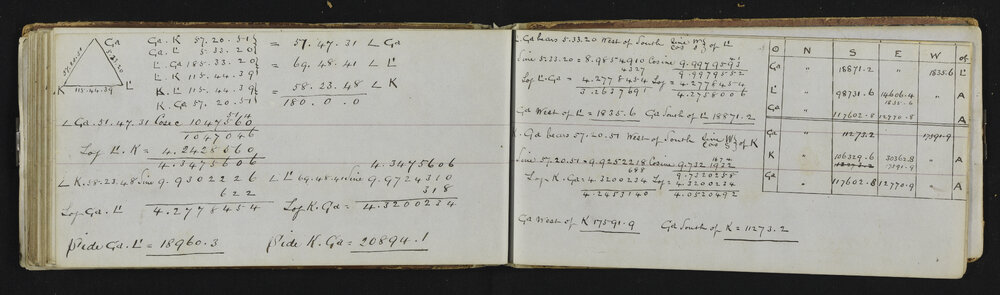 Ga
57.20.51
5.33.20
K
115.44.39
L
Ga. K 57.20.51
Ga. L 5.33.20 } = 51.47.31 ∠ Ga
L. Ga 185.33.20
L. K 115.44.39 } = 69.48.41 ∠ L
K. L 115.44.39
K. Ga 57.20.51 } = 58.23.48 ∠ K
180.0.0
∠ Ga. 51.47.31 Cosec 1047560
514
1047046
Log L. K = 4.2428560
4.3475606
4.3475606
∠ K. 58.23.48 Sine 9.9302226
622
∠ L 69.48.41 Sine 9.9724310
318
Log Ga. L 4.2778454
Log K. Ga = 4.3200234
Side Ga. L = 18960.3
Side K. Ga = 20894.1
L. Ga bears 5.33.20 West of South Sine W Cos S } of L
Sine 5.33.20 = 8.9854910 Cosine 9.9979593
4327
41
9.9979552
Log L-Ga = 4.2778454 Log = 4.2778454
3.2637691
4.2758006
Ga West of L = 1835.6 Ga South of L 18871.2
K. Ga bears 57.20.51 West of South Sine W Cos S } of K
Sine 57.20.51 = 9.9252218 Cosine 9.7321932
688
9.7320258
Log K. Ga = 4.3200234 Log 4.3200234
4.2453140
4.0520492
Ga West of K 17591.9 Ga South of K = 11273.2
O N S E W of
Ga " 18871.2 " 1835.6 L
L " 98731.6 14606.4 " A
1835.6
" 117602.8 12770.8 A
Ga " 11273.2 " 17591.9
K " 106329.6 30362.8 " A
11273.2 17591.9
Ga " 117602.8 12770.9 " A